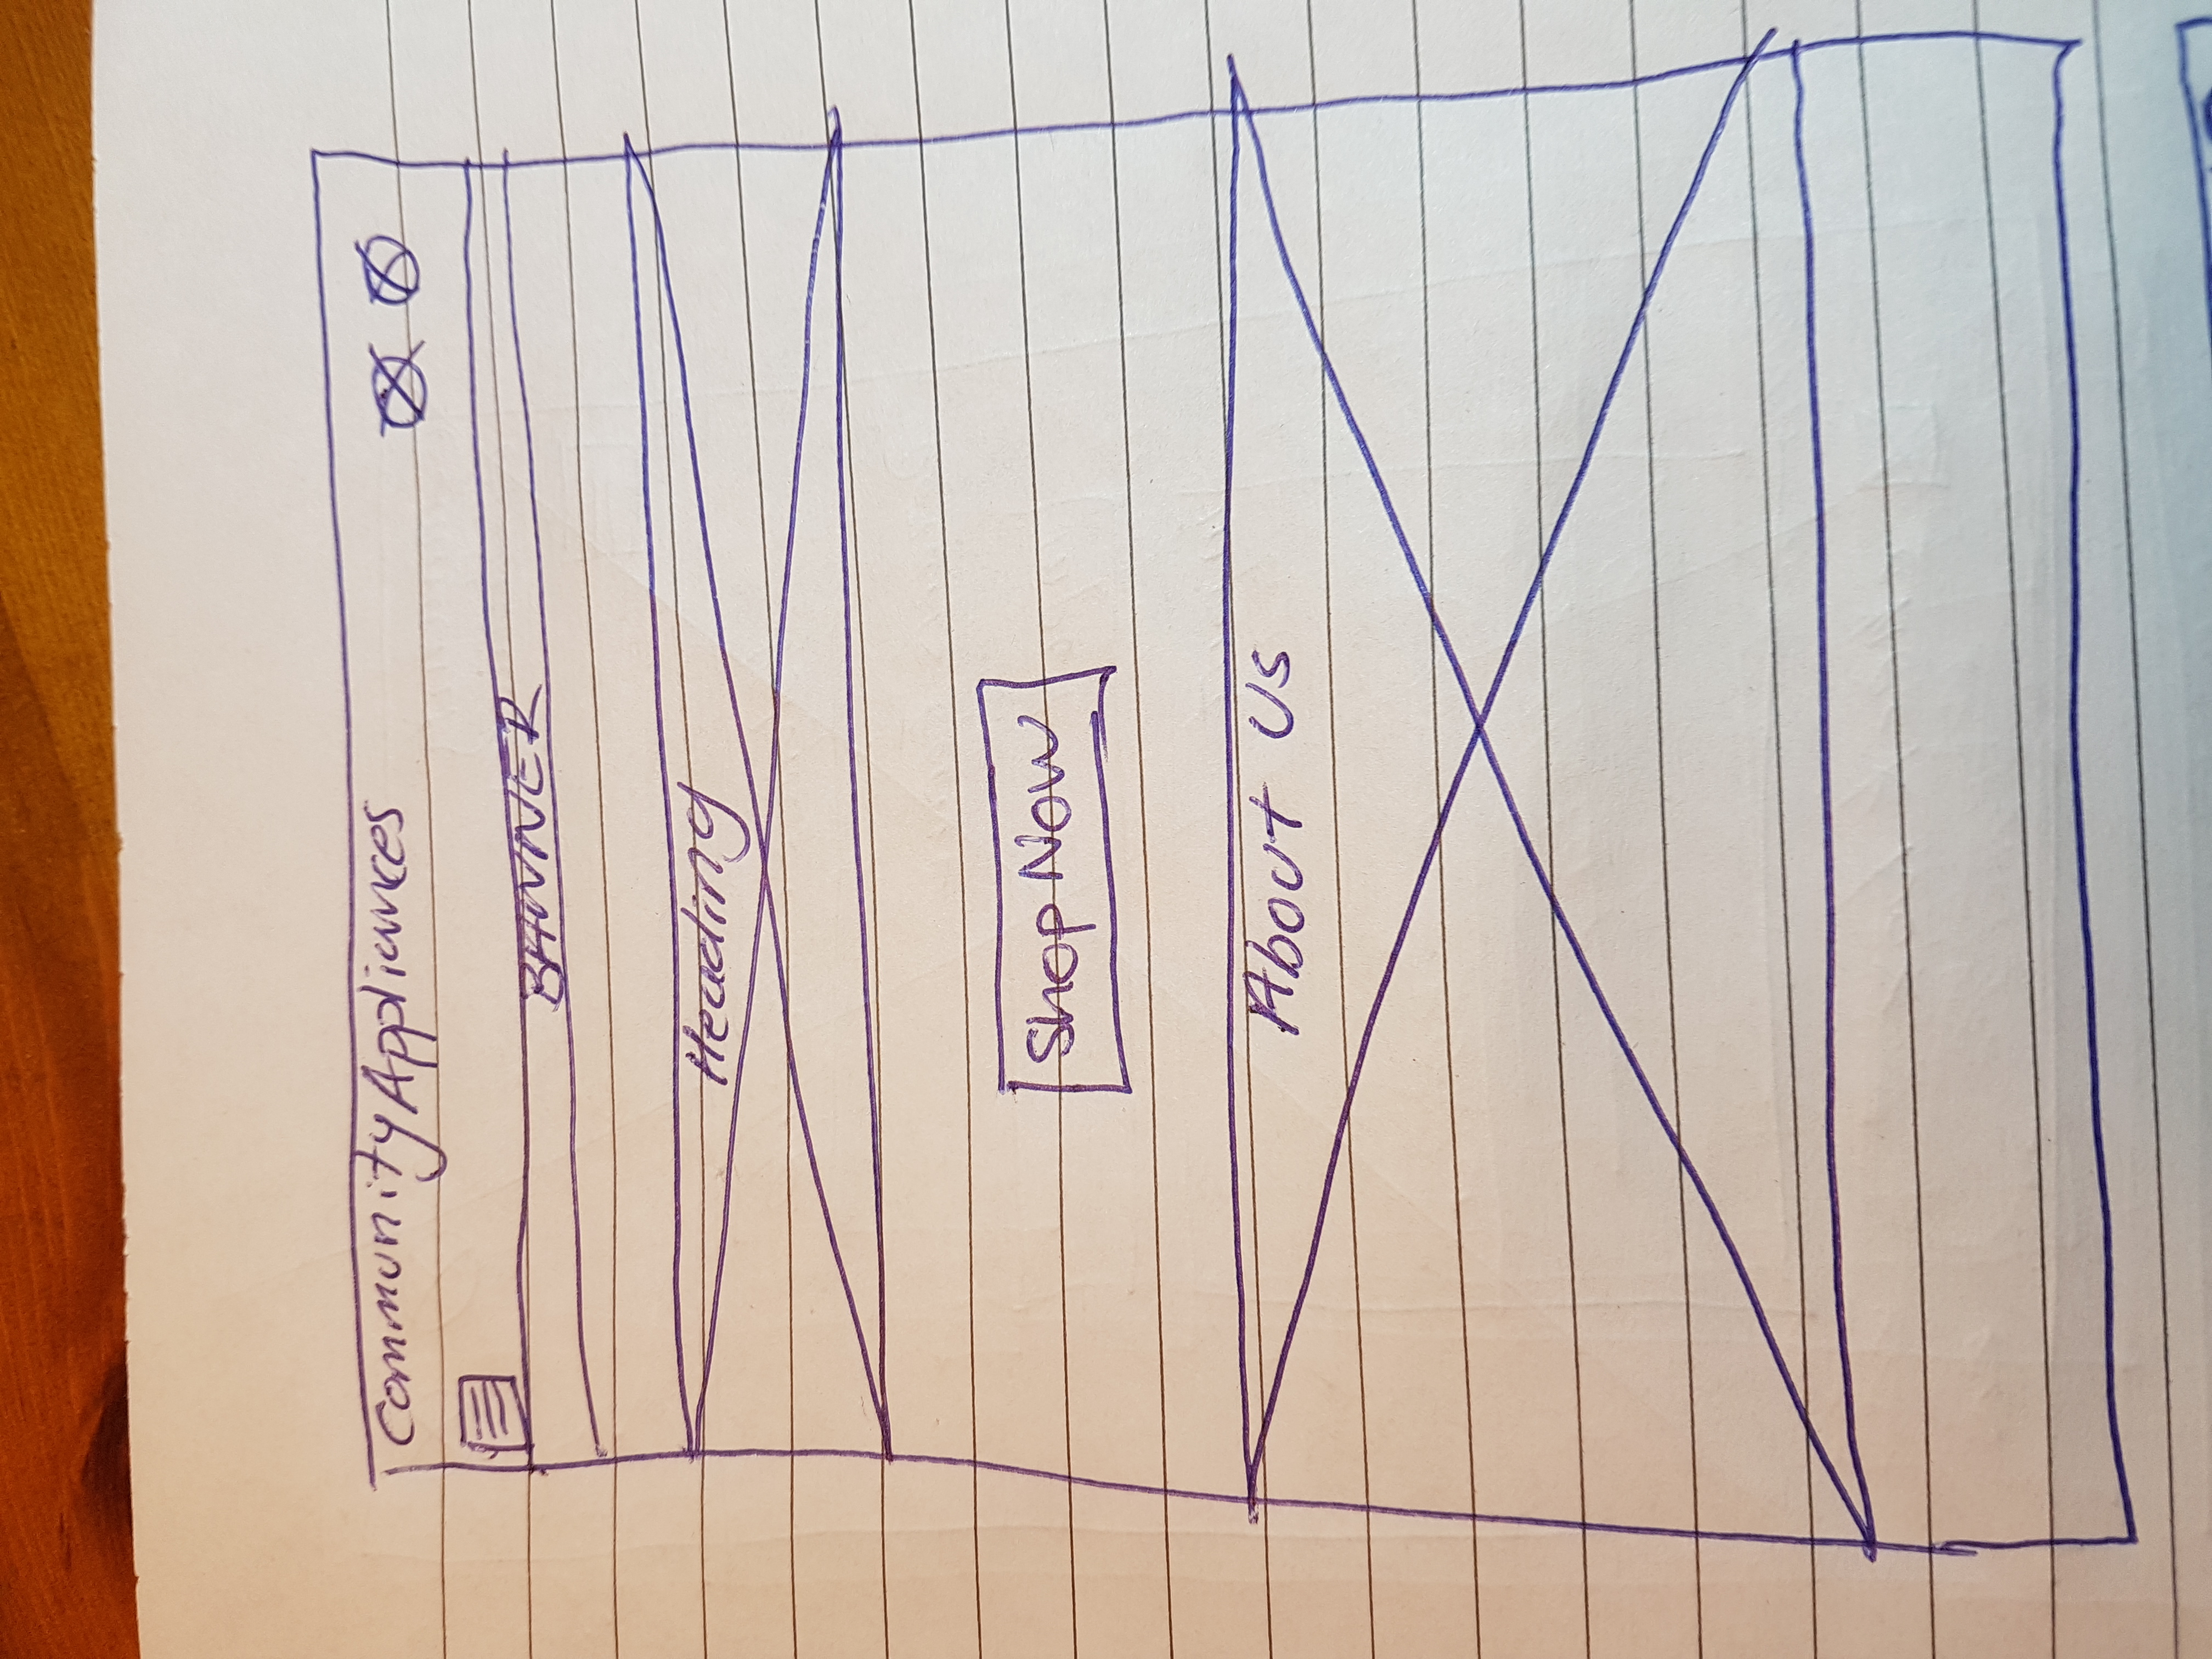 Community Appliances
BANNER
Heading
Shop Now
About Us